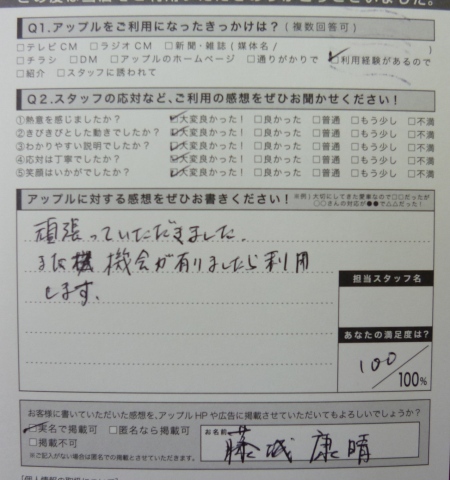 Q1.アップルをご利用になったきっかけは?(複数回答可)
□テレビCM □ラジオCM □新聞・雑誌(媒体名/ )
□チラシ □DM □アップルのホームページ □通りがかりで ☑利用経験があるので
□紹介 □スタッフに誘われて
Q2.スタッフの応対など、ご利用の感想をぜひお聞かせください!
①熱意を感じましたか? ☑大変良かった! □良かった □普通 □もう少し □不満
②きびきびとした動きでしたか? ☑大変良かった! □良かった □普通 □もう少し □不満
③わかりやすい説明でしたか? ☑大変良かった! □良かった □普通 □もう少し □不満
④応対は丁寧でしたか? ☑大変良かった! □良かった □普通 □もう少し □不満
⑤笑顔はいかがでしたか? ☑大変良かった! □良かった □普通 □もう少し □不満
アップルに対する感想をぜひお書きください!
※例)大切にしてきた愛車なので□□だったが
○○さんの対応が●●で△△だった!
頑張っていただきました。
また機会が有りましたら利用
します。
担当スタッフ名
あなたの満足度は?
100/100%
お客様に書いていただいた感想を、アップルHPや広告に掲載させていただいてもよろしいでしょうか?
☑実名で掲載可 □匿名なら掲載可
□掲載不可
※ご記入がない場合は匿名での掲載とさせていただきます。
お名前 藤城 康晴